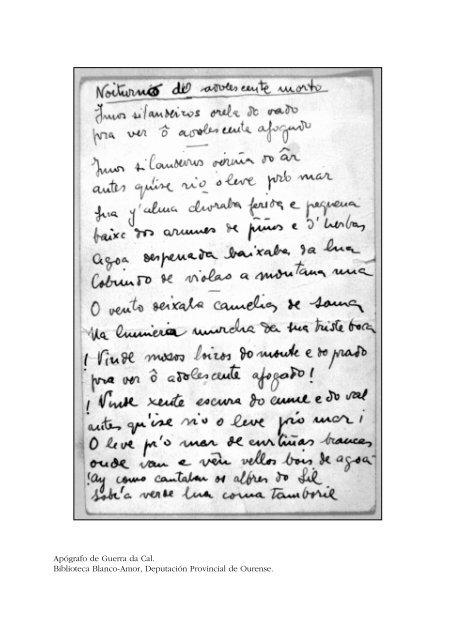 Noiturno do adolescente morto
Imos silandeiros orela do vado
pra ver ô adolescente afogado
Imos silandeiros veiriña do âr
antes qu'ise rio o leve pró mar
Sua y'alma choraba ferida e pequena
baixo dos arumes de piños e d'herbas
Agoa despenada baixaba da lua
Cobrindo de violas a montana nua
O vento deixaba camelias de soma
Na lumieira murcha da sua triste boca
¡ Vinde mosos loiros do monte e do prado
pra ver ô adolescente afogado !
¡ Vinde xente escura do cume e do val
antes qu'ise rio o leve pró mar ¡
O leve pr'o mar de curtiñas brancas
onde van e vên vellos bois de agoa
¡ay como cantaban os albres do Sil
Sobr'a verde lua coma tamboril
Apógrafo de Guerra da Cal.
Biblioteca Blanco-Amor, Deputación Provincial de Ourense.